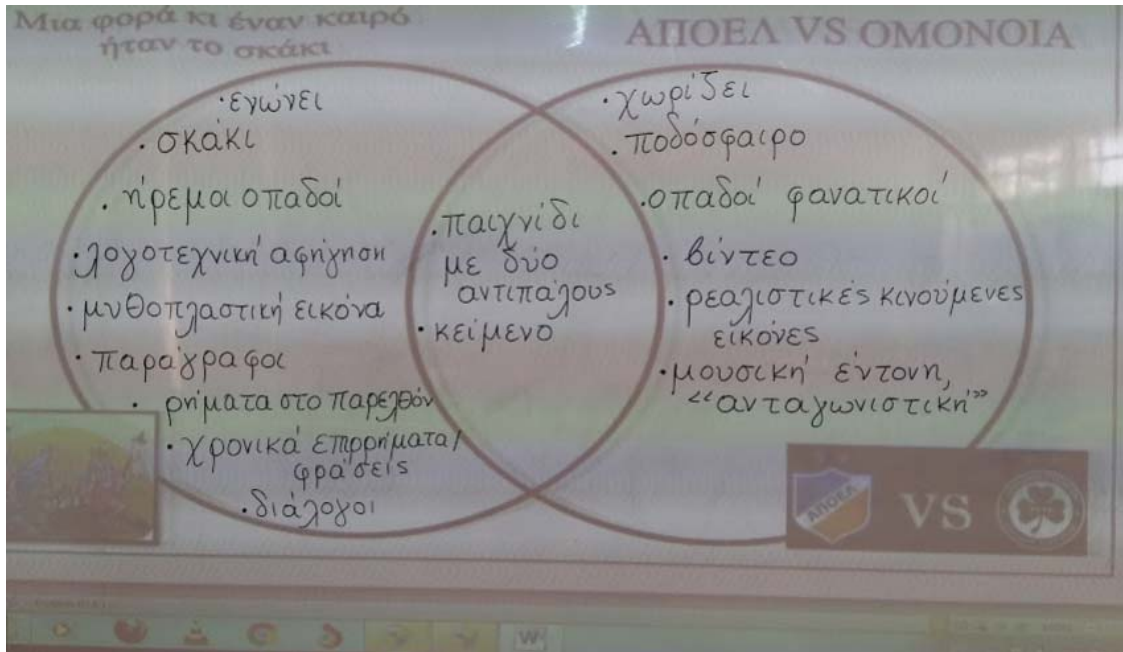 Μια φορά κι έναν καιρό
ήταν το σκάκι
ΑΠΟΕΛ VS ΟΜΟΝΟΙΑ
·ενώνει
·σκάκι
·ήρεμοι οπαδοί
·λογοτεχνική αφήγηση
·μυθοπλαστική εικόνα
·παράγραφοι
·ρήματα στο παρελθόν
·χρονικά επιρρήματα/
φράσεις
·διάλογοι
·παιχνίδι
με δύο
αντιπάλους
·κείμενο
·χωρίζει
·ποδόσφαιρο
·οπαδοί φανατικοί
·βίντεο
·ρεαλιστικές κινούμενες
εικόνες
·μουσική έντονη,
"ανταγωνιστική"
ΑΠΟΕΛ
VS
W